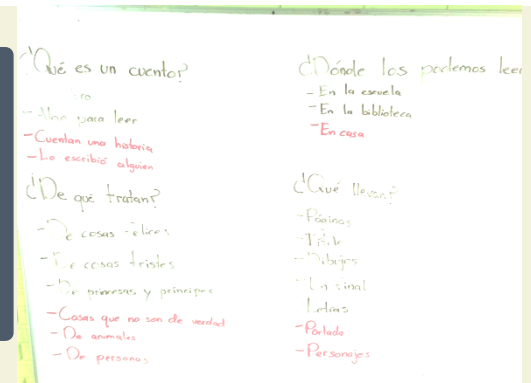 ¿Qué es un cuento?
para leer
- Cuentan una historia
- Lo escribió alguien
¿De qué tratan?
- De cosas felices
- De cosas tristes
- De princesas y príncipes
- Cosas que no son de verdad
- De animales
- De personas
¿Dónde los podemos leer
- En la escuela
- En la biblioteca
- En casa
¿Qué llevan?
- Páginas
- Título
- Dibujos
- Un final
Letras
- Portada
- Personajes